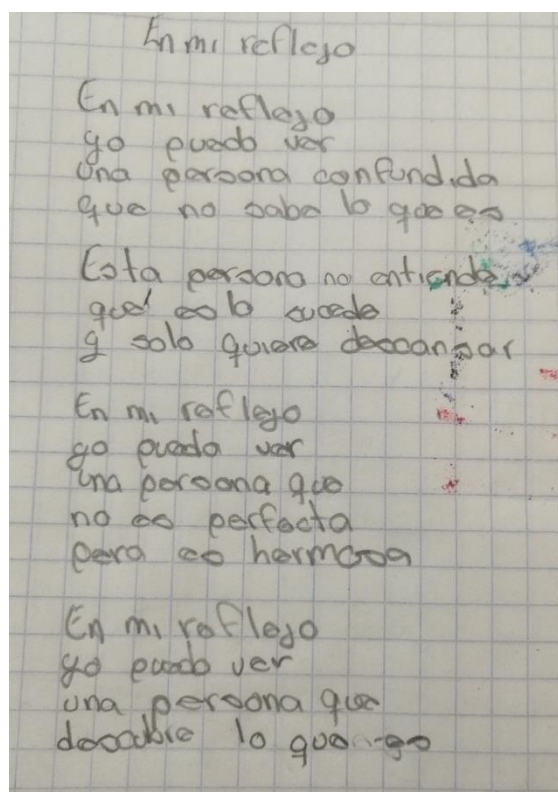 En mi reflejo
En mi reflejo
yo puedo ver
una persona confundida
que no sabe lo que es
Esta persona no entiende
qué es lo sucede
y solo quiere descansar
En mi reflejo
yo puedo ver
una persona que
no es perfecta
pero es hermosa
En mi reflejo
yo puedo ver
una persona que
descubre lo que es